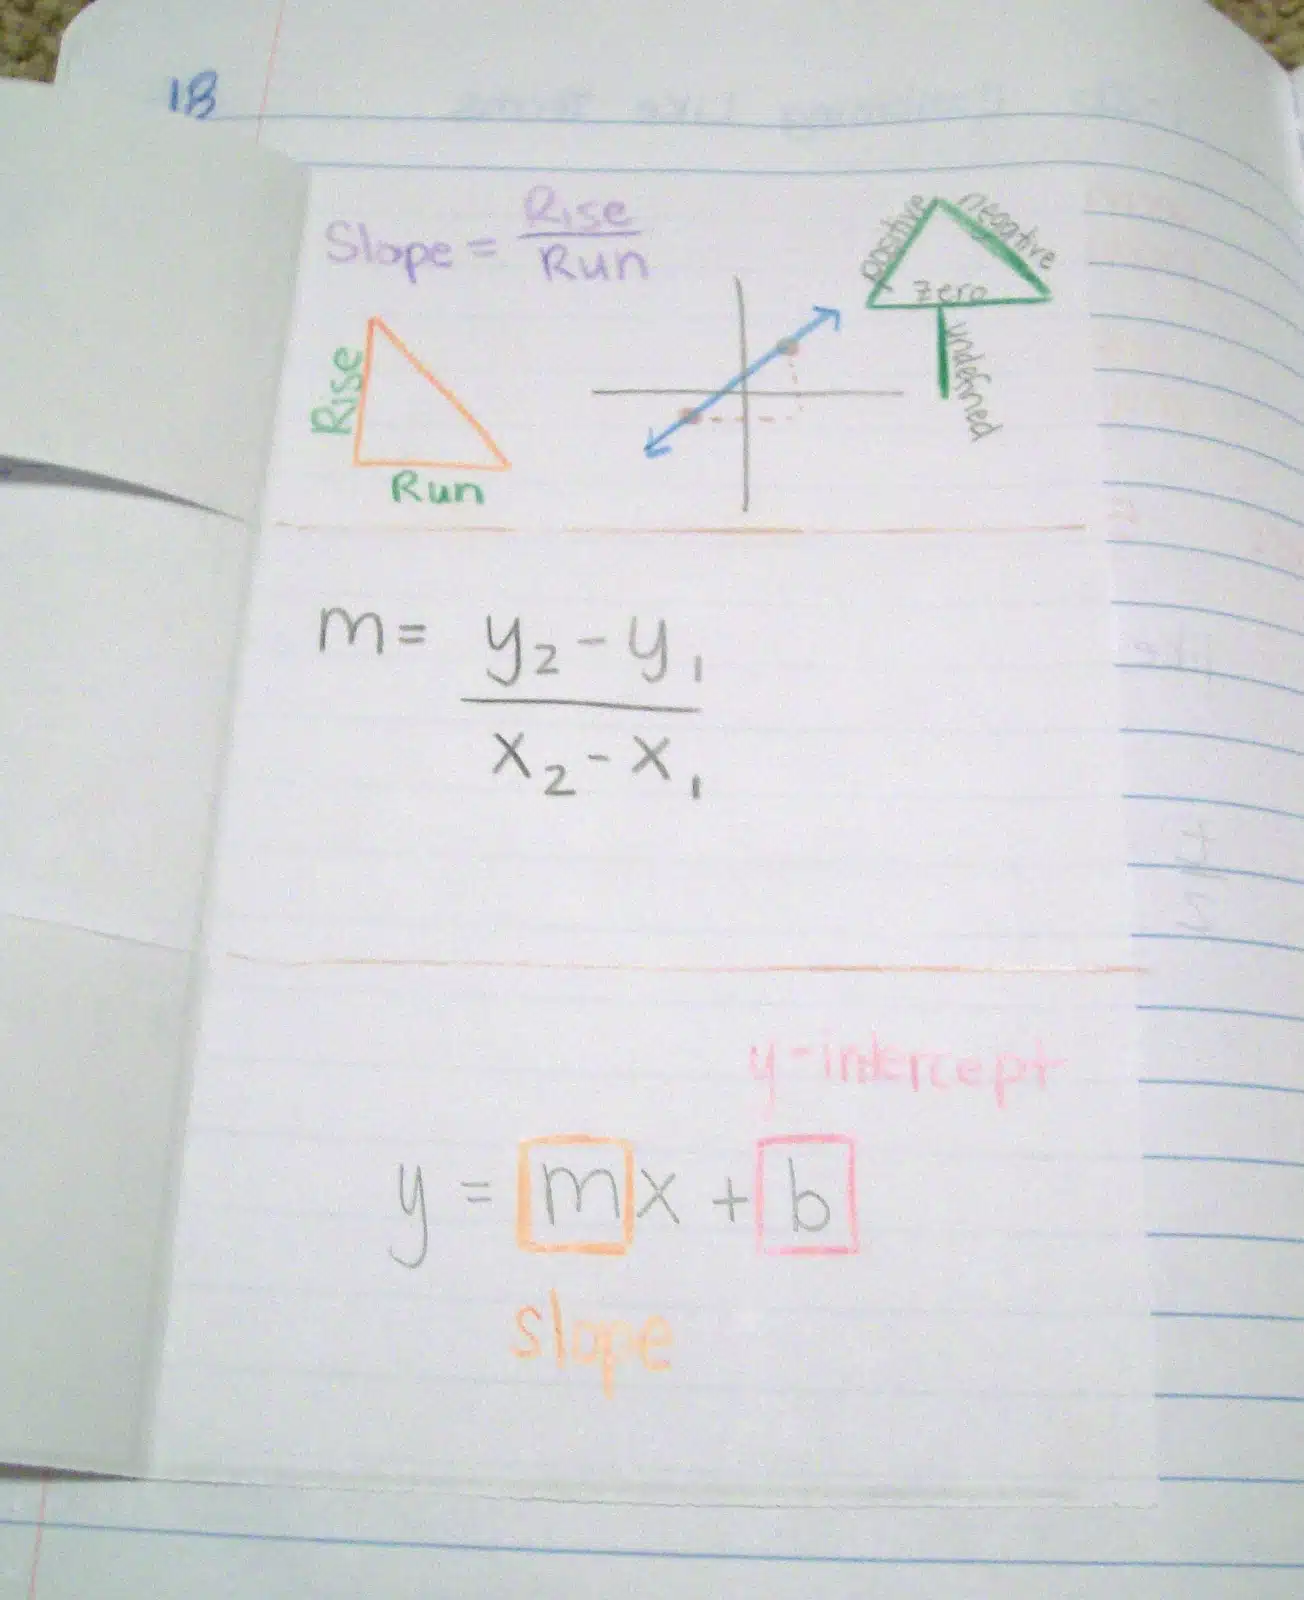 18
Slope = Rise
Run
positive
negative
zero
undefined
Rise
Run
m = y₂ - y₁
x₂ - x₁
y-intercept
y = mx + b
slope